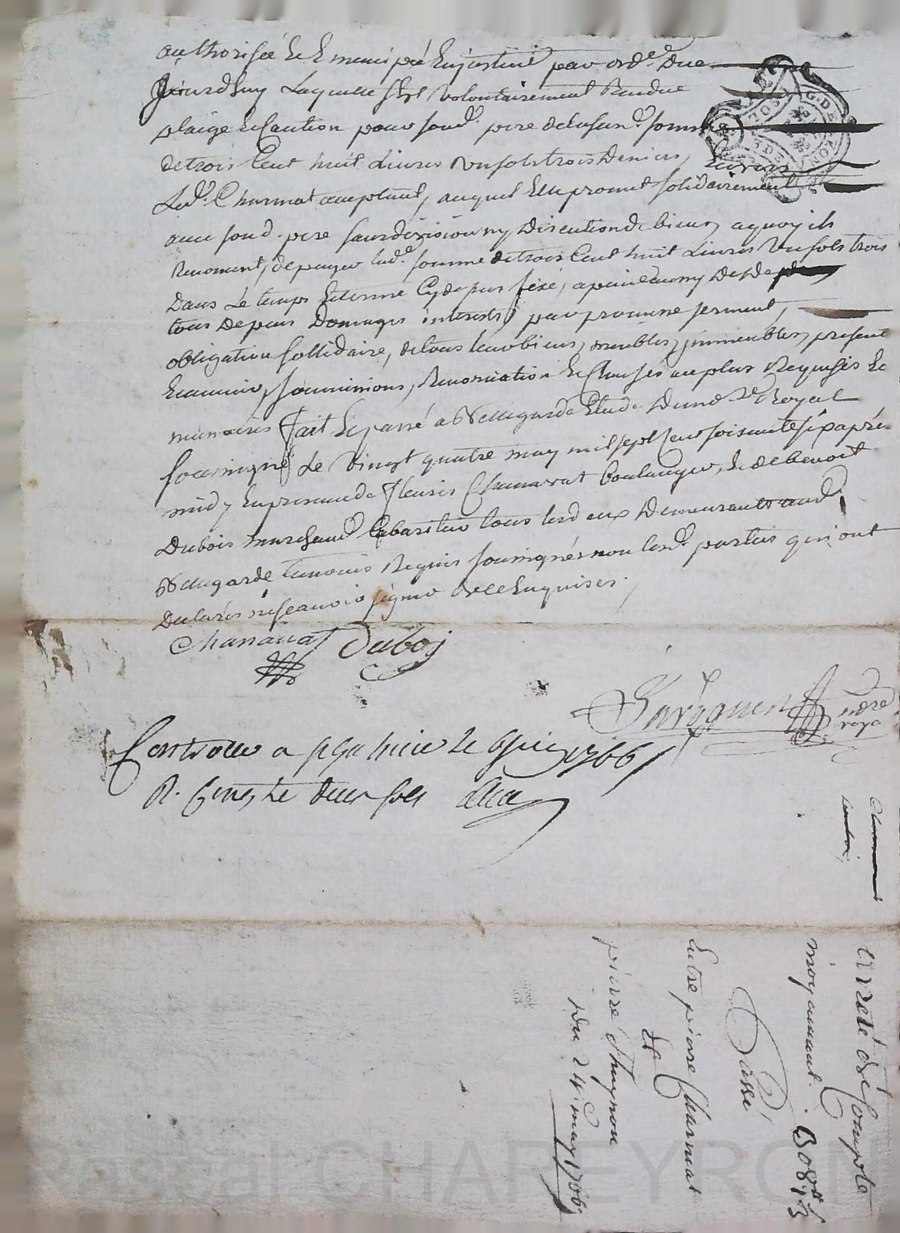 authorisée & Emancipée En justice par ord.ce Due
Jourdhuy Laquelle sest volontairement Rendue
plaige & Caution pour sond. pere de lasusd. somme
de trois Cent huit Livres un sols trois Deniers,
Led. Charmat acceptant, auquel Elle promet solidairement
avec sond. pere sans division ny Discution de biens, a quoy ils
Renoncent, de payer lad. somme de trois Cent huit Livres un sols trois
Dans Le temps & terme Cy depus fixé, a peine
tous Depens Domages interests, par promesse serment,
obligation sollidaire, de tous leur biens, meubles, immeubles, present
Et avenir, soumissions, Renonciation & Clauses au plus Requises &
necessaires fait & passé a Bellegarde Etude Du no.re Royal
soussigné Le Vingt quatre may mil sept Cent soisante six après
midy En presence de fleury Chanavat Boulanger, & de benoit
Dubois marchand Cabaretier tous les deux Demeurants aud.
Bellegarde temoins Requis soussignés non lesd. parties qui ont
Declarés ne scavoir signer de ce Enquises.
Chanavat Duboy
no.re royal
Controlé a le 1766
R. deux sols
arreté de Compte
moyennant. 308.ll 1.s 3
Passé
Entre pierre Charmat
&
pierre
Du 24. may 1766
G. DE LYON
Pascal CHAPEYRON